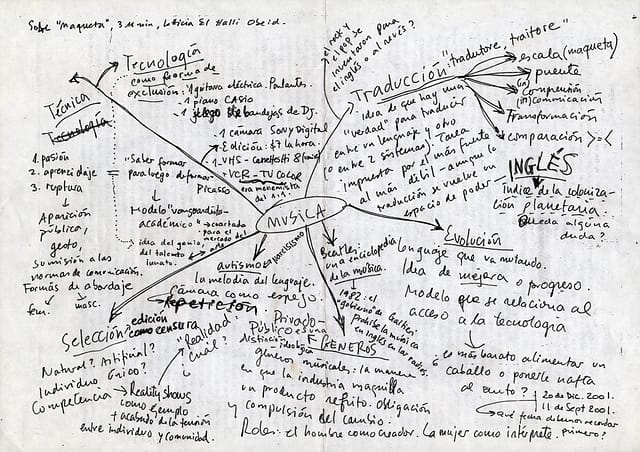 Sobre "Maqueta", 3 min, Leticia El Halli Obeid.
el rock y
el pop se
inventaron para
el inglés o al revés?
Tecnología
como forma de
exclusión: 1 guitarra eléctrica. Parlantes.
1 piano CASIO
1 juego de bandejas de DJ.
1 cámara Sony Digital
Edición: $7 la hora.
1 VHS
VCR - TV COLOR
era menemista
del 1 a 1.
Técnica
Tecnología
1. pasión
2. aprendizaje
3. ruptura
Aparición
pública,
gesto,
sumisión a las
normas de comunicación.
Formas de abordaje
fem. masc.
"Saber formar
para luego deformar"
Picasso
Modelo "vanguardista-
académico"
coartada
para el
mercado del
arte
idea del genio
del talento
innato.
Traducción
"tradutore, traitore"
escala (maqueta)
puente
(in)
comprensión
(in)comunicación
Transformación
comparación > = <
idea de que hay una
"verdad" para traducir
entre un lenguaje y otro
(o entre 2 sistemas). Tarea
impuesta por el más fuerte
al más débil - aunque la
traducción se vuelve un
espacio de poder
INGLÉS
Índice de la coloniza-
ción planetaria.
Queda alguna
duda?
MUSICA
Evolución
lenguaje que va mutando.
Idea de mejora o progreso
Modelo que se relaciona al
acceso a la tecnología
es más barato alimentar un
caballo o ponerle nafta
al auto?
20 de Dic. 2001.
11 de Sept 2001.
qué fecha debemos recordar
primero?
autismo
la melodía del lenguaje.
Cámara como espejo.
repetición
Beatles:
una enciclopedia
de la música.
1982: el
gobierno de Galtieri
Prohibe la música
en Inglés en las radios.
Selección
edición
como censura
Natural? Artificial?
Individuo único?
Competencia
Reality shows
como ejemplo
+ acabado de la tensión
entre individuo y comunidad.
"Realidad"
cuál?
Privado-
Público es una
distinción ideológica
GENEROS
géneros musicales: la manera
en que la industria maquilla
un producto refrito. Obligación
y compulsión del cambio.
Roles: el hombre como creador. La mujer como intérprete.